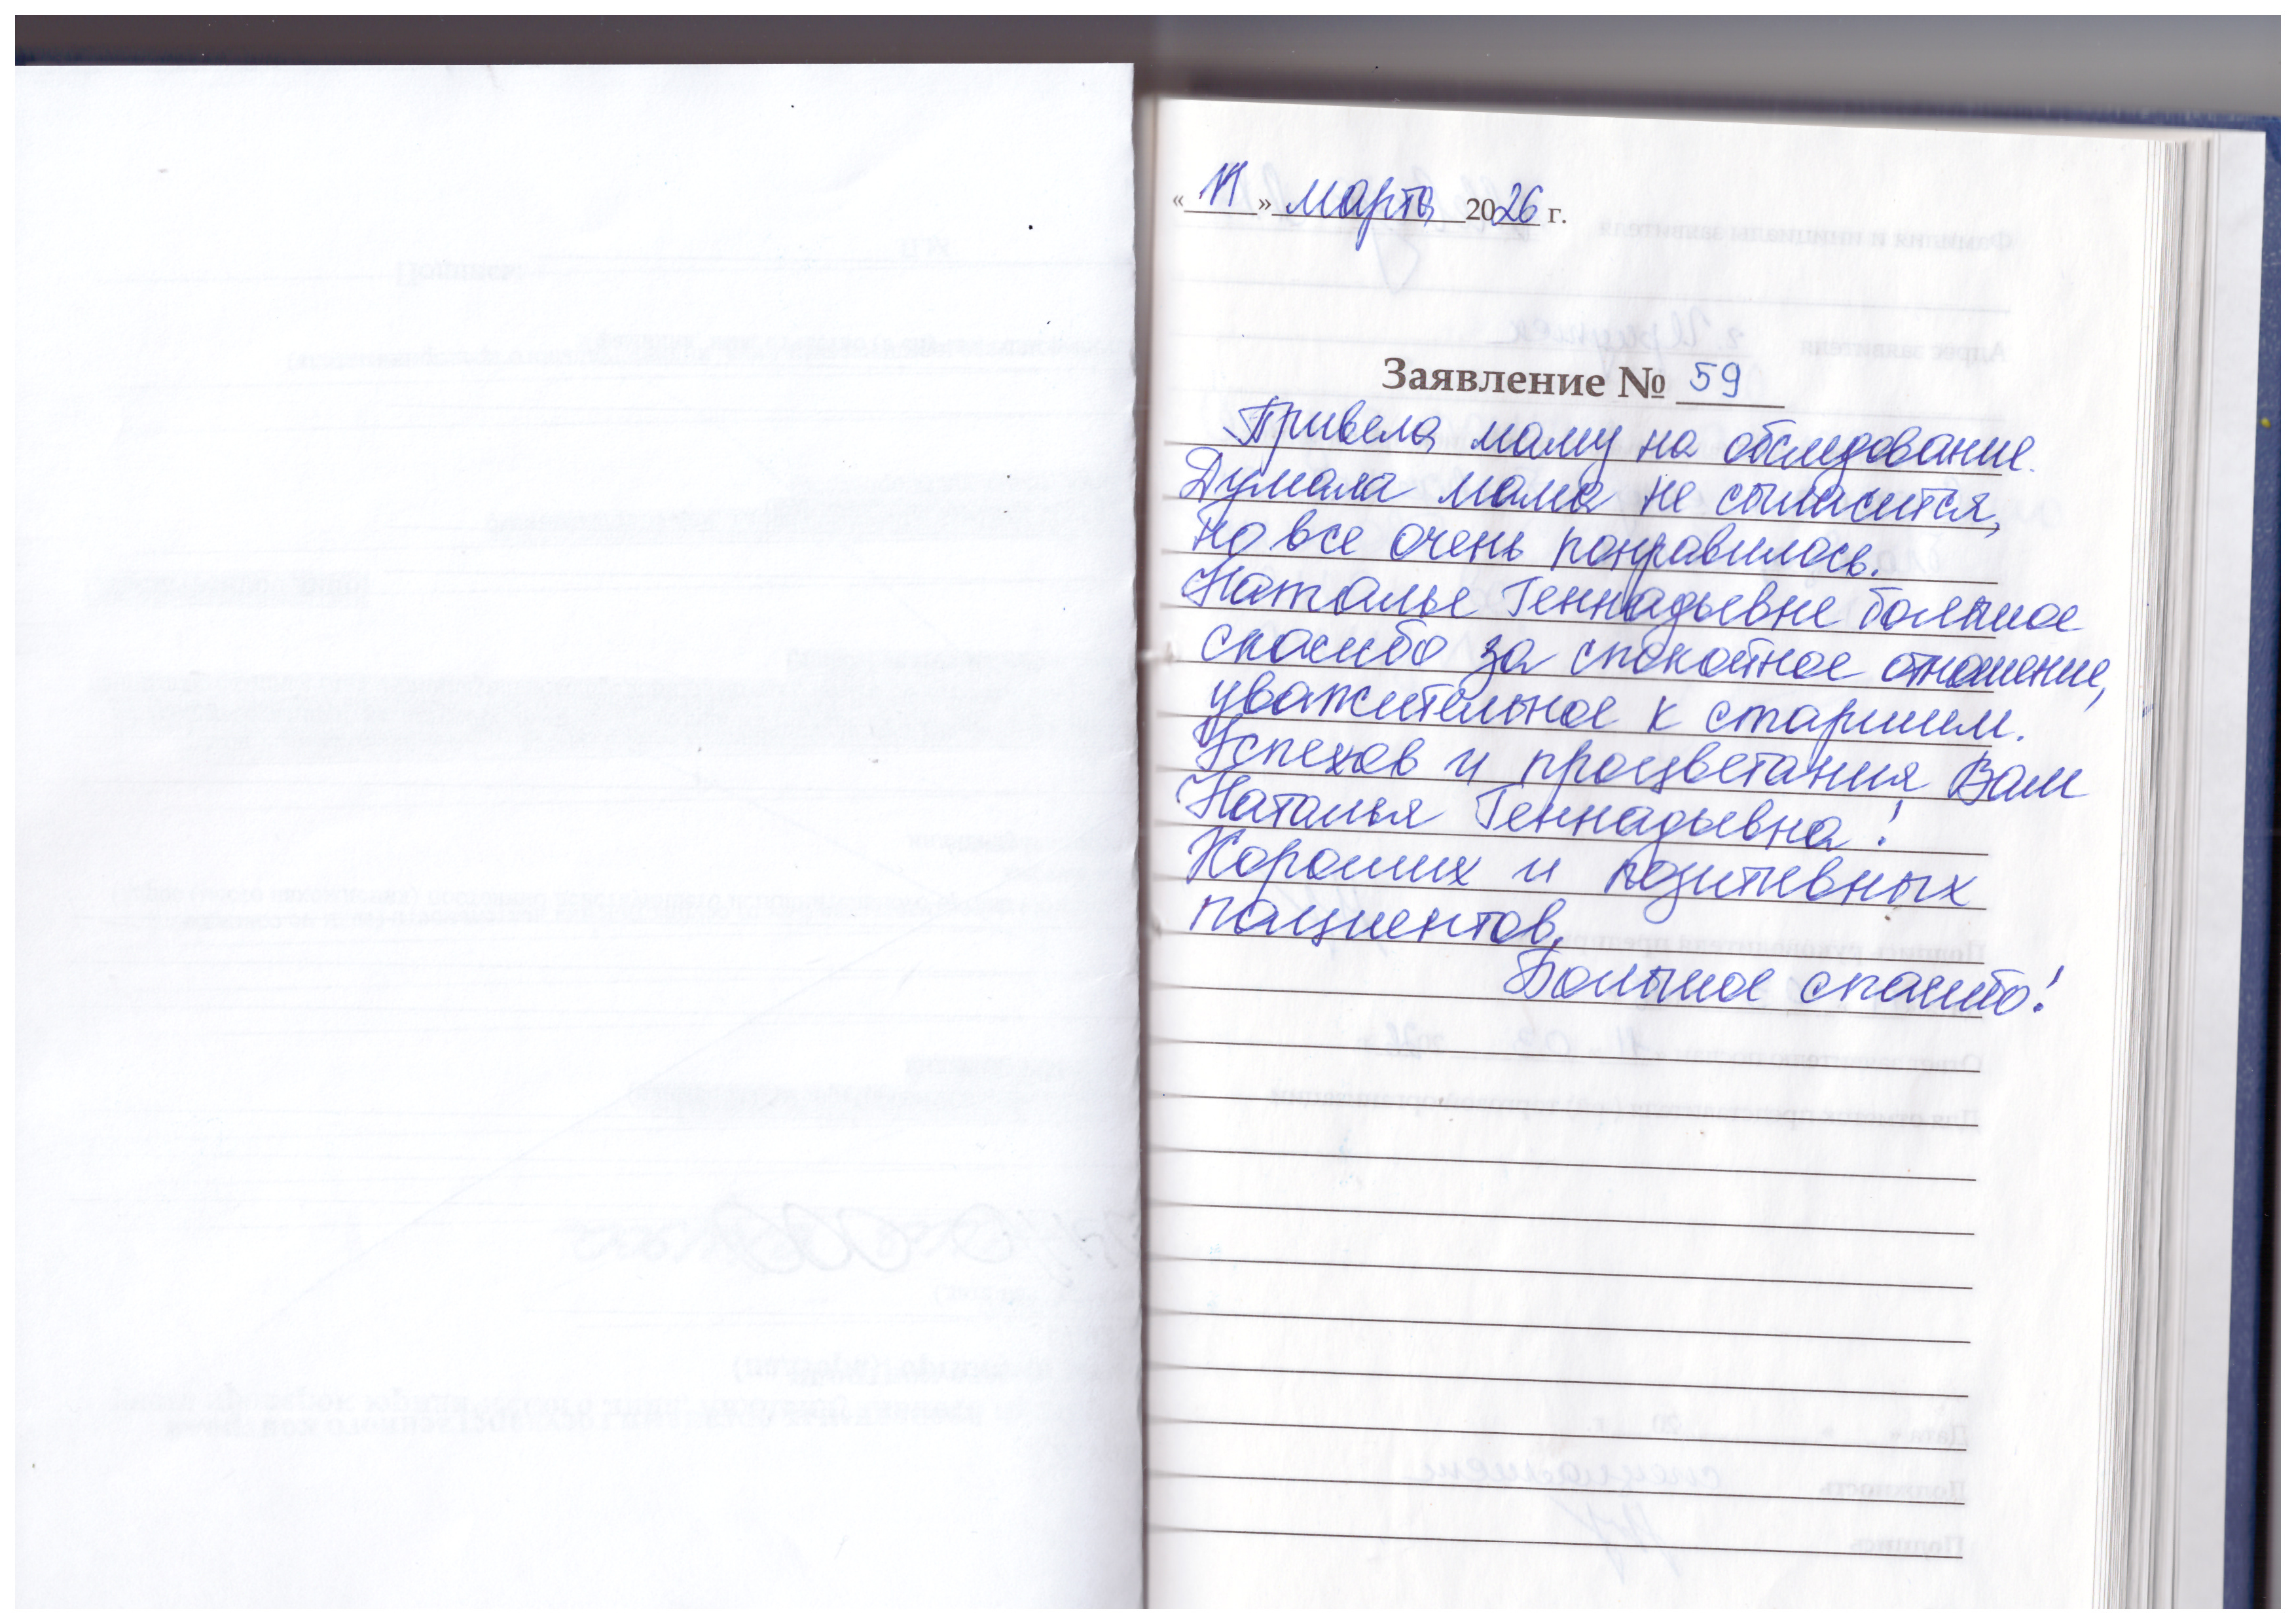 «11» марта 2026 г.
Заявление № 59
Привела маму на обследование.
Думала мама не согласится,
но все очень понравилось.
Наталье Геннадьевне большое
спасибо за спокойное отношение,
уважительное к старшим.
Успехов и процветания Вам
Наталья Геннадьевна!
Хороших и позитивных
пациентов,
Большое спасибо!